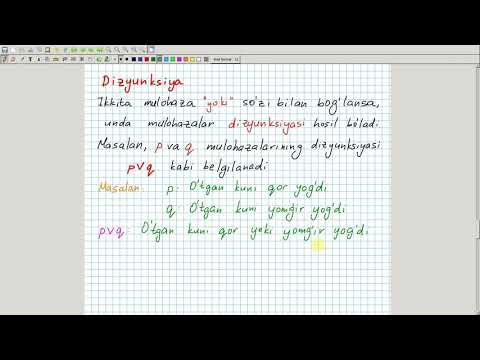 Dizyunksiya
Ikkita mulohaza "yoki" so'zi bilan bog'lansa,
unda mulohazalar dizyunksiyasi hosil bo'ladi.
Masalan, p va q mulohazalarining dizyunksiyasi
p∨q kabi belgilanadi
Masalan: p: O'tgan kuni qor yog'di
q: O'tgan kuni yomg'ir yog'di
p∨q: O'tgan kuni qor yoki yomg'ir yog'di